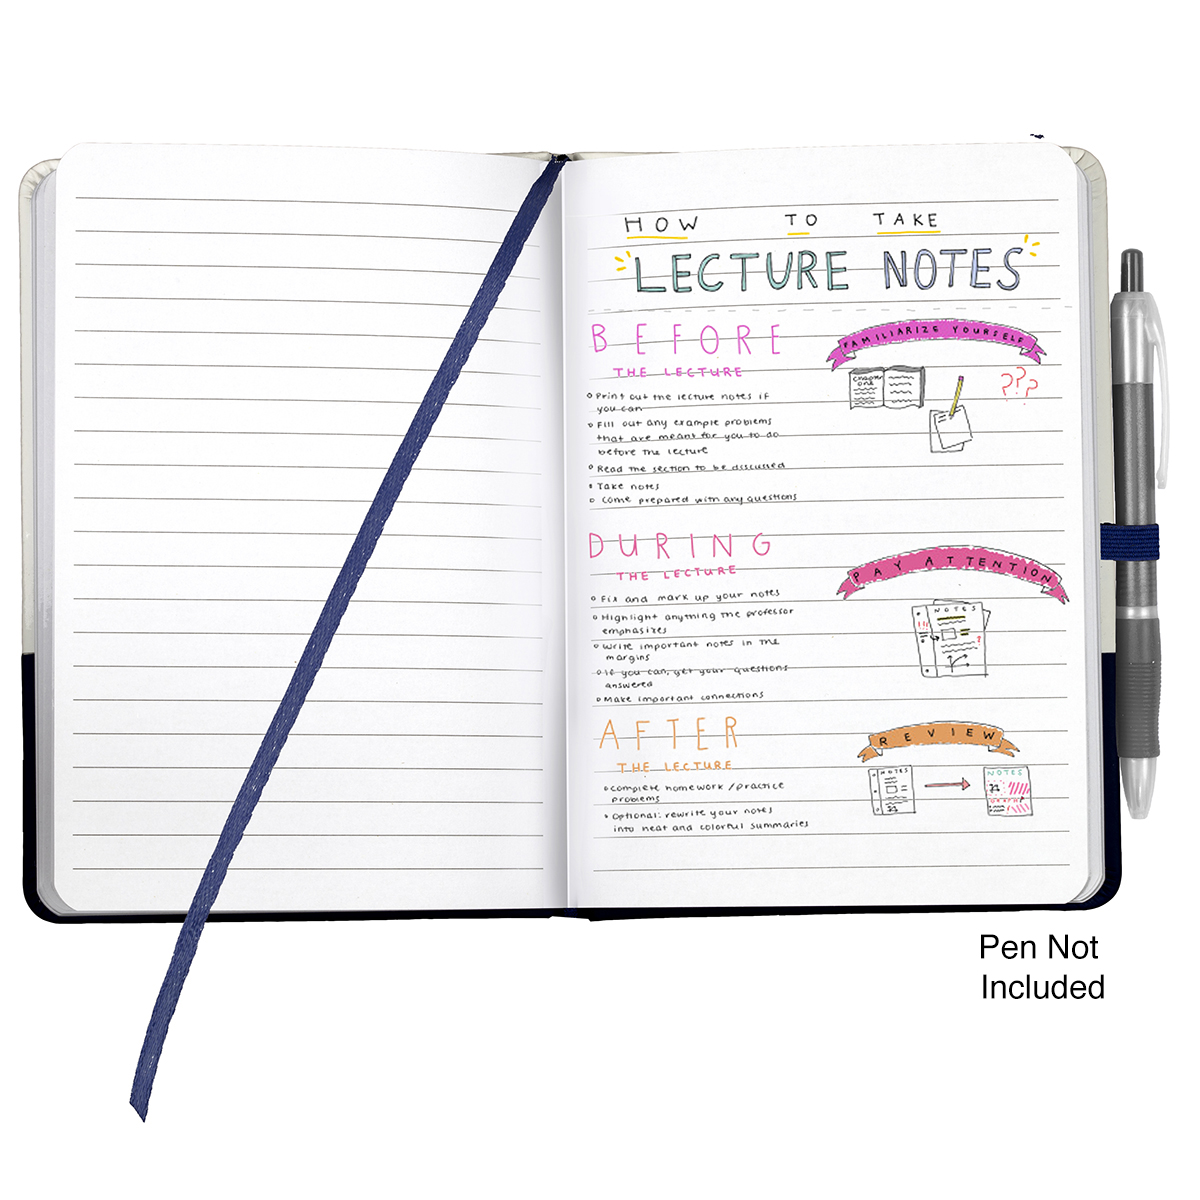 HOW TO TAKE
LECTURE NOTES
BEFORE
THE LECTURE
FAMILIARIZE YOURSELF
Chapter
one
???
Print out the lecture notes if
you can
Fill out any example problems
that are meant for you to do
before the lecture
Read the section to be discussed
Take notes
Come prepared with any questions
DURING
THE LECTURE
PAY ATTENTION
NOTES
Fix and mark up your notes
Highlight anything the professor
emphasizes
Write important notes in the
margins
If you can, get your questions
answered
Make important connections
AFTER
THE LECTURE
REVIEW
NOTES
NOTES
Complete homework / practice
problems
Optional: rewrite your notes
into neat and colorful summaries
Pen Not
Included